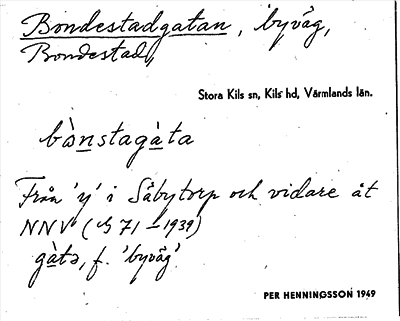 Bondestadgatan, byväg,
Bondestad,
Stora Kils sn, Kils hd, Värmlands län.
bònstagàta
Från 'y' i Såbytorp och vidare åt
NNV ( 71 – 1939)
gàtə, f. 'byväg'.
PER HENNINGSSON 1949